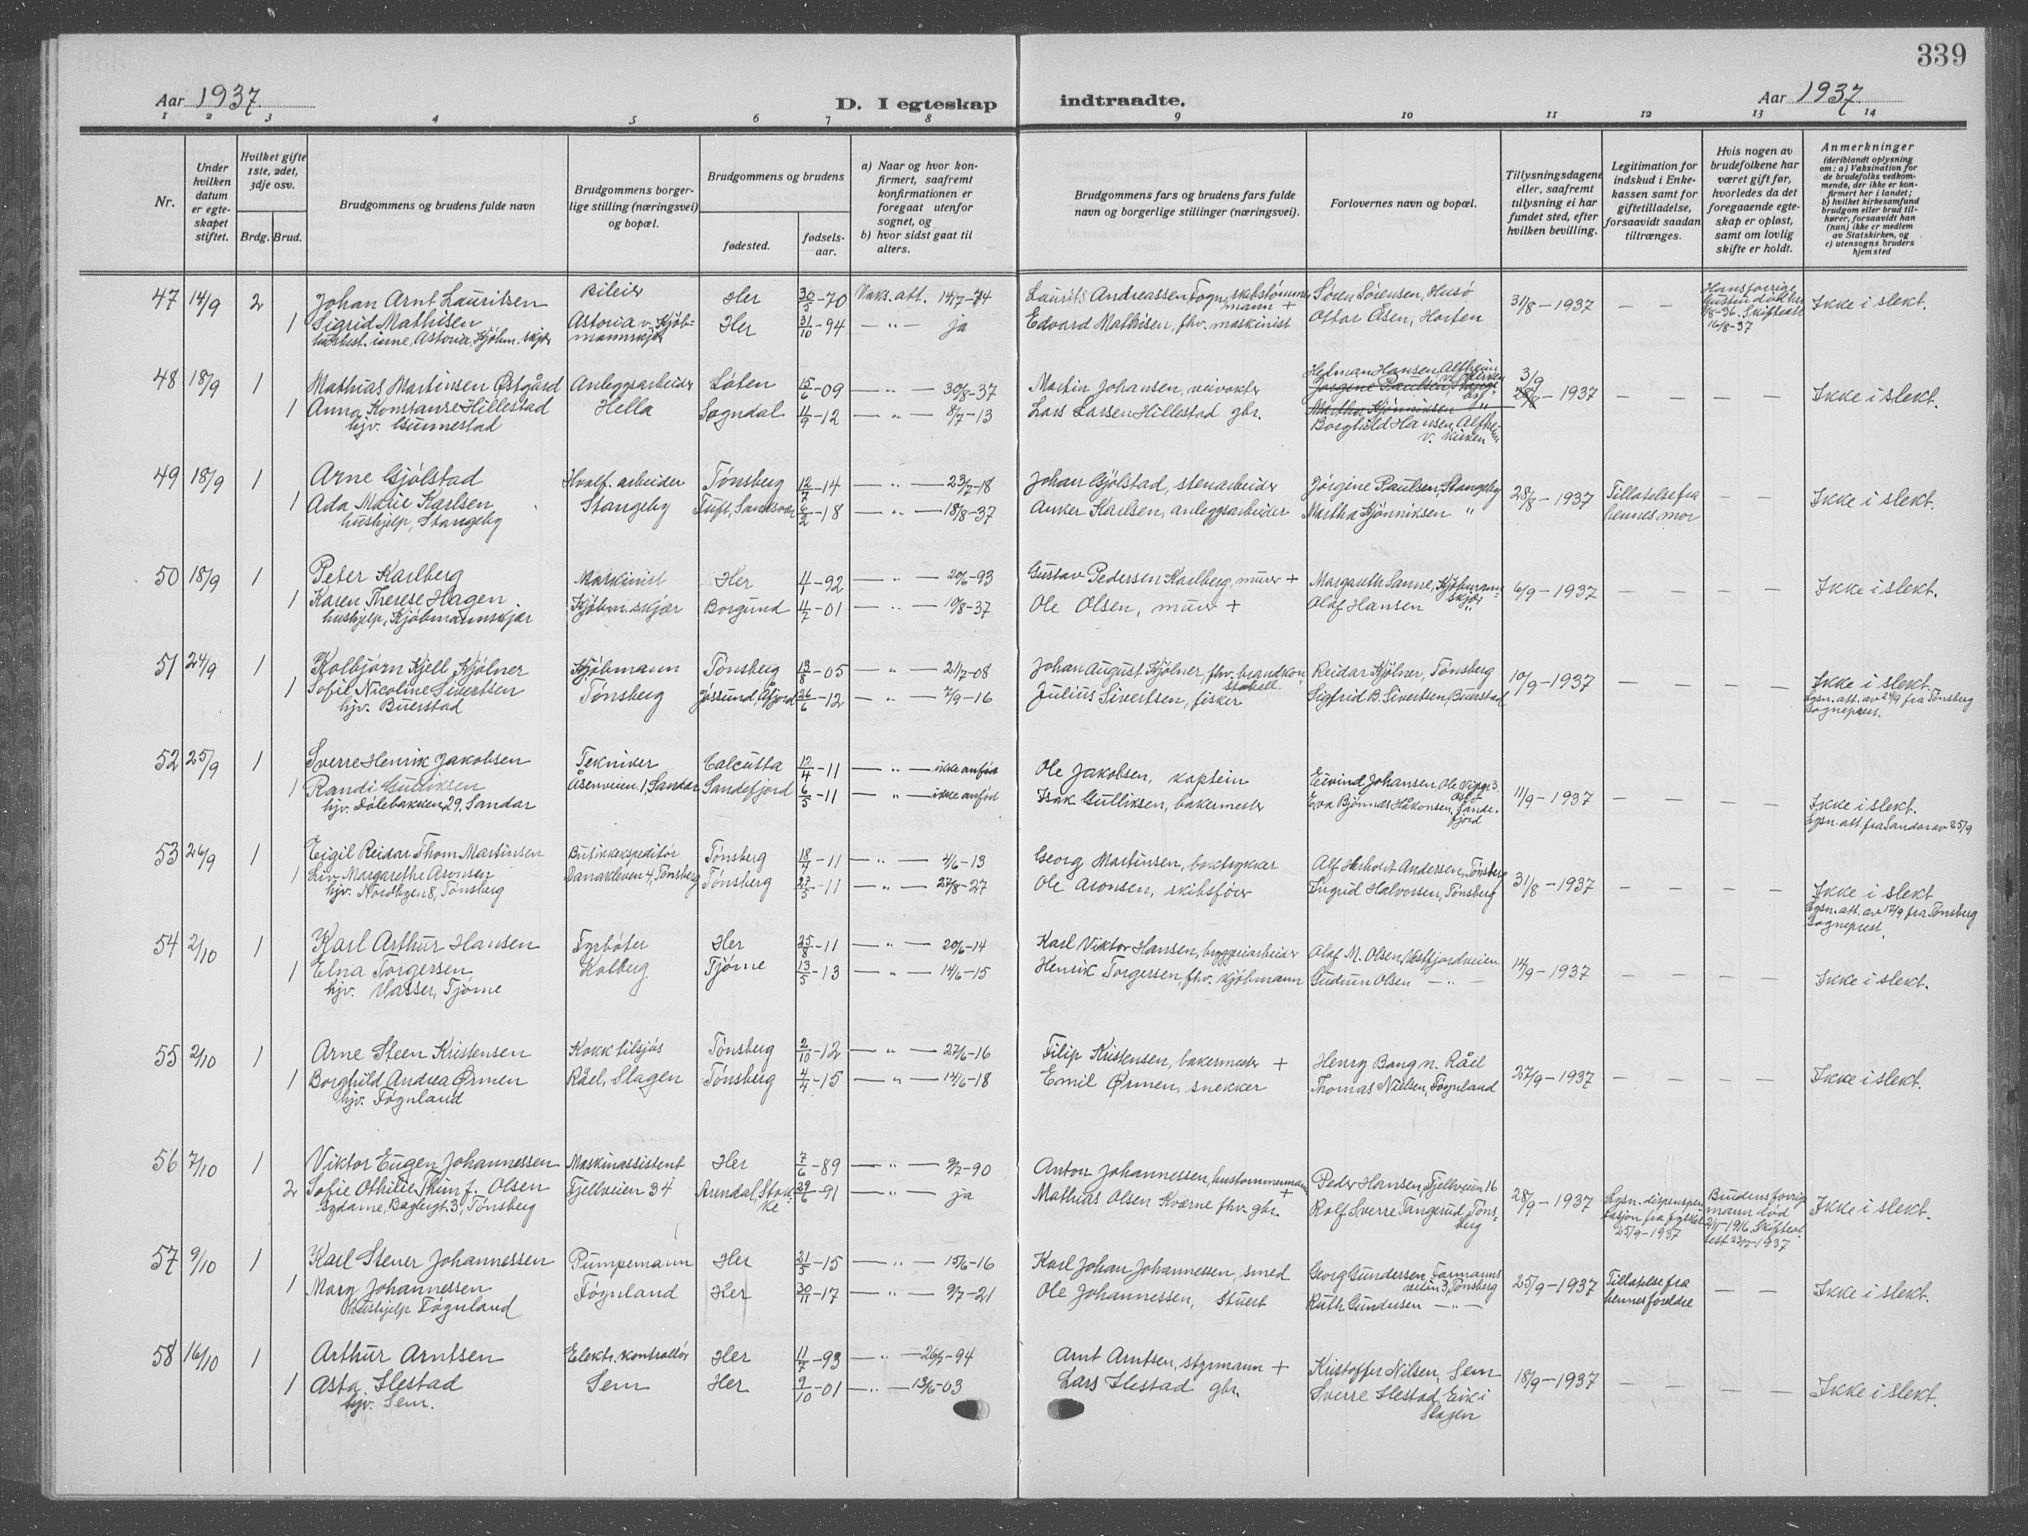 339
Aar 1937. D. I egteskap indtraadte. Aar 1937.
1 2 3 4 5 6 7 8 9 10 11 12 13 14
Nr.
Under hvilken datum er egteskapet stiftet.
Hvilket gifte 1ste, 2det, 3dje osv.
Brdg. Brud.
Brudgommens og brudens fulde navn
Brudgommens borgerlige stilling (næringsvei) og bopæl.
Brudgommens og brudens
fødested. fødselsaar.
a) Naar og hvor konfirmert, saafremt konfirmationen er foregaat utenfor sognet, og
b) hvor sidst gaat til alters.
Brudgommens fars og brudens fars fulde navn og borgerlige stillinger (næringsvei).
Forlovernes navn og bopæl.
Tillysningsdagene eller, saafremt tillysning ei har fundet sted, efter hvilken bevilling.
Legitimation for indskud i Enkekassen samt for giftetilladelse, forsaavidt saadan tiltrænges.
Hvis nogen av brudefolkene har været gift før, hvorledes da det foregaaende egteskap er opløst, samt om lovlig skifte er holdt.
Anmerkninger
(deriblandt oplysning om: a) Vaksination for de brudefolks vedkommende, der ikke er konfirmert her i landet; b) hvilket kirkesamfund brudgom eller brud tilhører, forsaavidt han (hun) ikke er medlem av Statskirken, og c) utensogns bruders hjemsted
47 14/9 2 Johan Arnt Lauritsen Bileier Her 30/5-70 Vaks. att. 14/7-74 Laurits Andreassen Fogn, skibstømmermann + Søren Sørensen, Husø 31/8-1937 — — Ikke i slekt.
1 Sigrid Mathisen Astoria v. Kjøbmannskjær Her 31/10-94 — " — ja Edvard Mathisen, fhv. maskinist Ottar Olsen, Horten
48 18/9 1 Mathias Martinsen Østgård Anleggsarbeider Løten 15/6-09 — " — 30/8-37 Martin Johansen, veivokter Hedman Hansen, Alfheim 3/9 28/8-1937 — — Ikke i slekt.
1 Anna Konstanse Hillestad Hella Sogndal 14/9-12 — " — 8/7-13 Lars Larsen Hillestad gbr. Borghild Hansen, Alfheim v. kirken
hjv. Gunnestad
49 18/9 1 Arne Gjølstad Hvalf. arbeider Tønsberg 12/7-14 — " — 23/7-18 Johan Gjølstad, stenarbeider Jørgine Paulsen, Stangeby 28/8-1937 Tillatelse fra hennes mor — — Ikke i slekt.
1 Ada Marie Karlsen Stangeby Tuft, Sandsvær 6/2-18 — " — 18/8-37 Anker Karlsen, anleggsarbeider Martha Kjønniksen "
hushjelp, Stangeby
50 18/9 1 Peter Karlberg Maskinist Her 4/1-92 — " — 20/6-93 Gustav Pedersen Karlberg, murer + Margareth Sanne, Kjøbmannskjær 6/9-1937 — — Ikke i slekt.
1 Karen Therese Hagen Kjøbm.skjær Borgund 4/7-01 — " — 10/8-37 Ole Olsen, murer + Olaf Hansen "
hushjelp, Kjøbmannskjær
51 24/9 1 Kolbjørn Kjell Kjølner Kjøbmann Tønsberg 13/8-05 — " — 21/7-08 Johan August Kjølner, fhv. brandkonstabel Reidar Kjølner, Tønsberg 10/9-1937 — — Ikke i slekt.
1 Sofie Nicoline Sivertsen Tønsberg Jøssund, Åfjord 26/6-12 — " — 7/9-16 Julius Sivertsen, fisker Sigfrid B. Sivertsen, Buerstad Lysn. att. av 24/9 fra Tønsberg Sogneprest.
hjv. Buerstad
52 25/9 1 Sverre Henrik Jakobsen Tekniker Calcutta 12/4-11 — " — ikke anført Ole Jakobsen, kaptein Eivind Johansen, Ole Vigsg. 3. Oslo 11/9-1937 — — — Ikke i slekt.
1 Randi Gulliksen Åsenveien 1, Sandar Sandefjord 6/5-11 — " — ikke anført Isak Gulliksen, bakermester Eva Bjønnes Håkonsen, Sandefjord Lysn. att. fra Sandar av 25/9
hjv. Dølebakken 29, Sandar
53 26/9 1 Eigil Reidar Thom Martinsen Butikkekspeditør Tønsberg 18/4-11 — " — 4/6-13 Georg Martinsen, boktrykker Alf Herholdt Andersen, Tønsberg 31/8-1937 — — — Ikke i slekt
1 Liv Margarethe Aronsen Danakleven 4, Tønsberg Tønsberg 27/5-11 — " — 27/8-27 Ole Aronsen, skibsfører Ingrid Halvorsen, Tønsberg Lysn. att. av 17/9 fra Tønsberg Sogneprest.
hjv. Nordbyen 8, Tønsberg
54 2/10 1 Karl Arthur Hansen Fyrbøter Her 25/8-11 — " — 20/6-14 Karl Viktor Hansen, bryggeriarbeider Olaf M. Olsen, Vestfjordveien 14/9-1937 — — — Ikke i slekt.
1 Elna Torgersen Kolberg Tjøme 13/5-13 — " — 14/6-15 Henrik Torgersen, fhv. kjøbmann Gudrun Olsen — " —
hjv. Vasser, Tjøme
55 2/10 1 Arne Steen Kristensen Kokk tilsjøs Tønsberg 2/10-12 — " — 27/6-16 Filip Kristensen, bakermester + Henry Bang n. Råel 27/9-1937 — — — Ikke i slekt.
1 Borghild Andrea Ørmen Råel, Slagen Tønsberg 4/4-15 — " — 14/6-18 Emil Ørmen, snekker Thomas Nielsen, Føgnland
hjv. Føgnland
56 7/10 1 Viktor Eugen Johannessen Maskinassistent Her 7/6-89 — " — 9/7-90 Anton Johannessen, hustømmermann + Peder Hansen, Fjellveien 16 28/9-1937 Lysn. dispensasjon fra fylket 25/9-1937 Brudens forrige mann død 2/11-1916. Skifteattest 23/7-1937 Ikke i slekt.
2 Sofie Othilie Thim f. Olsen Fjellveien 34 Arendal, Stokke 29/6-91 — " — ja Mathias Olsen Kværne fhv. gbr. Rolf Sverre Tangerud, Tønsberg
sydame, Baglergt. 3, Tønsberg
57 9/10 1 Karl Stener Johannessen Pumpemann Her 21/5-15 — " — 15/6-16 Karl Johan Johannessen, smed Georg Gundersen, Farmannsveien 3, Tønsberg 25/9-1937 Tillatelse fra hennes foreldre — — Ikke i slekt.
1 Mary Johannessen Føgnland Her 30/11-17 — " — 9/7-21 Ole Johannessen, stuert Ruth Gundersen — " —
Hushjelp Føgnland
58 16/10 1 Arthur Arntsen Elektr. kontrollør Her 11/7-93 — " — 26/7-94 Arnt Arntsen, styrmann + Kristoffer Nilsen, Sem 18/9-1937 — — — Ikke i slekt.
1 Asta Ilestad Sem Her 9/10-01 — " — 13/6-03 Lars Ilestad gbr. Sverre Ilestad, Eik i Slagen
hjv. Sem.